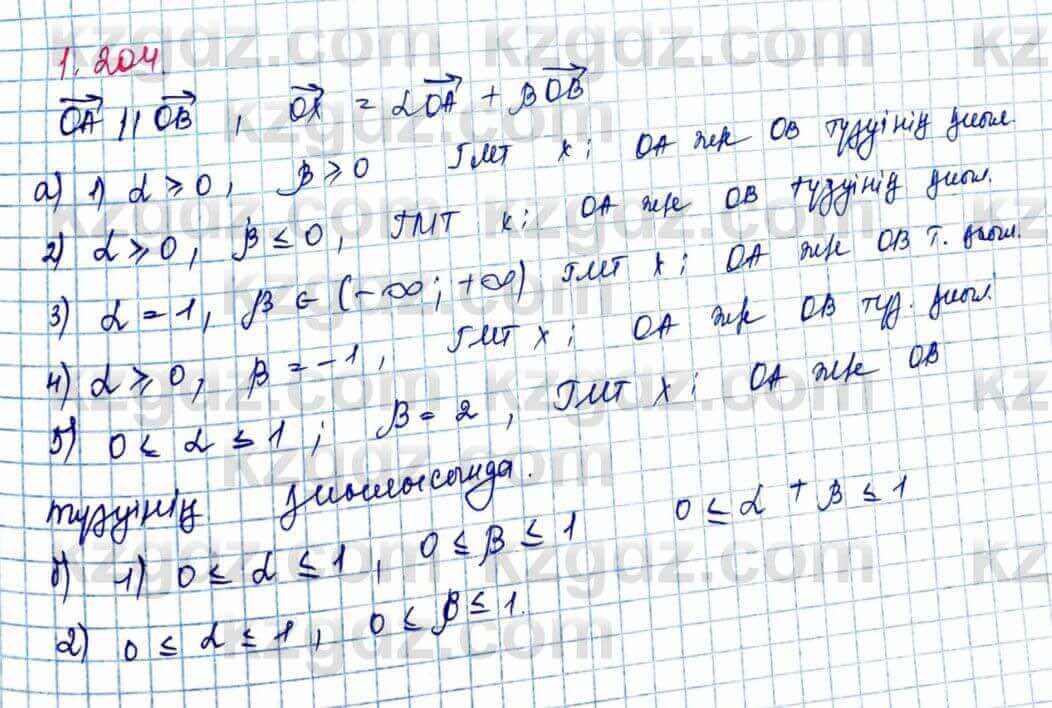 1.204
OA || OB, OX = αOA + βOB
а) 1) α ≥ 0, β ≥ 0 ГМТ x; OA және OB түзуінің
2) α ≥ 0, β ≤ 0, ГМТ x; OA және OB түзуінің
3) α = 1, β ∈ (-∞; +∞) ГМТ x; OA және OB т.
4) α ≥ 0, β = -1, ГМТ x; OA және OB түз.
5) 0 ≤ α ≤ 1; β = 2, ГМТ x; OA және OB
түзуінің
б) 1) 0 ≤ α ≤ 1, 0 ≤ β ≤ 1 0 ≤ α + β ≤ 1
2) 0 ≤ α ≤ 1, 0 ≤ β ≤ 1.
kzgdz.com